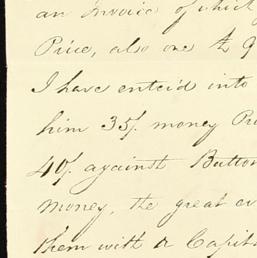 an Invoice of which
Price, also one
I have enter'd into
him 35/. money Pr
40/. against Button
money, the great ev
them with a Capit